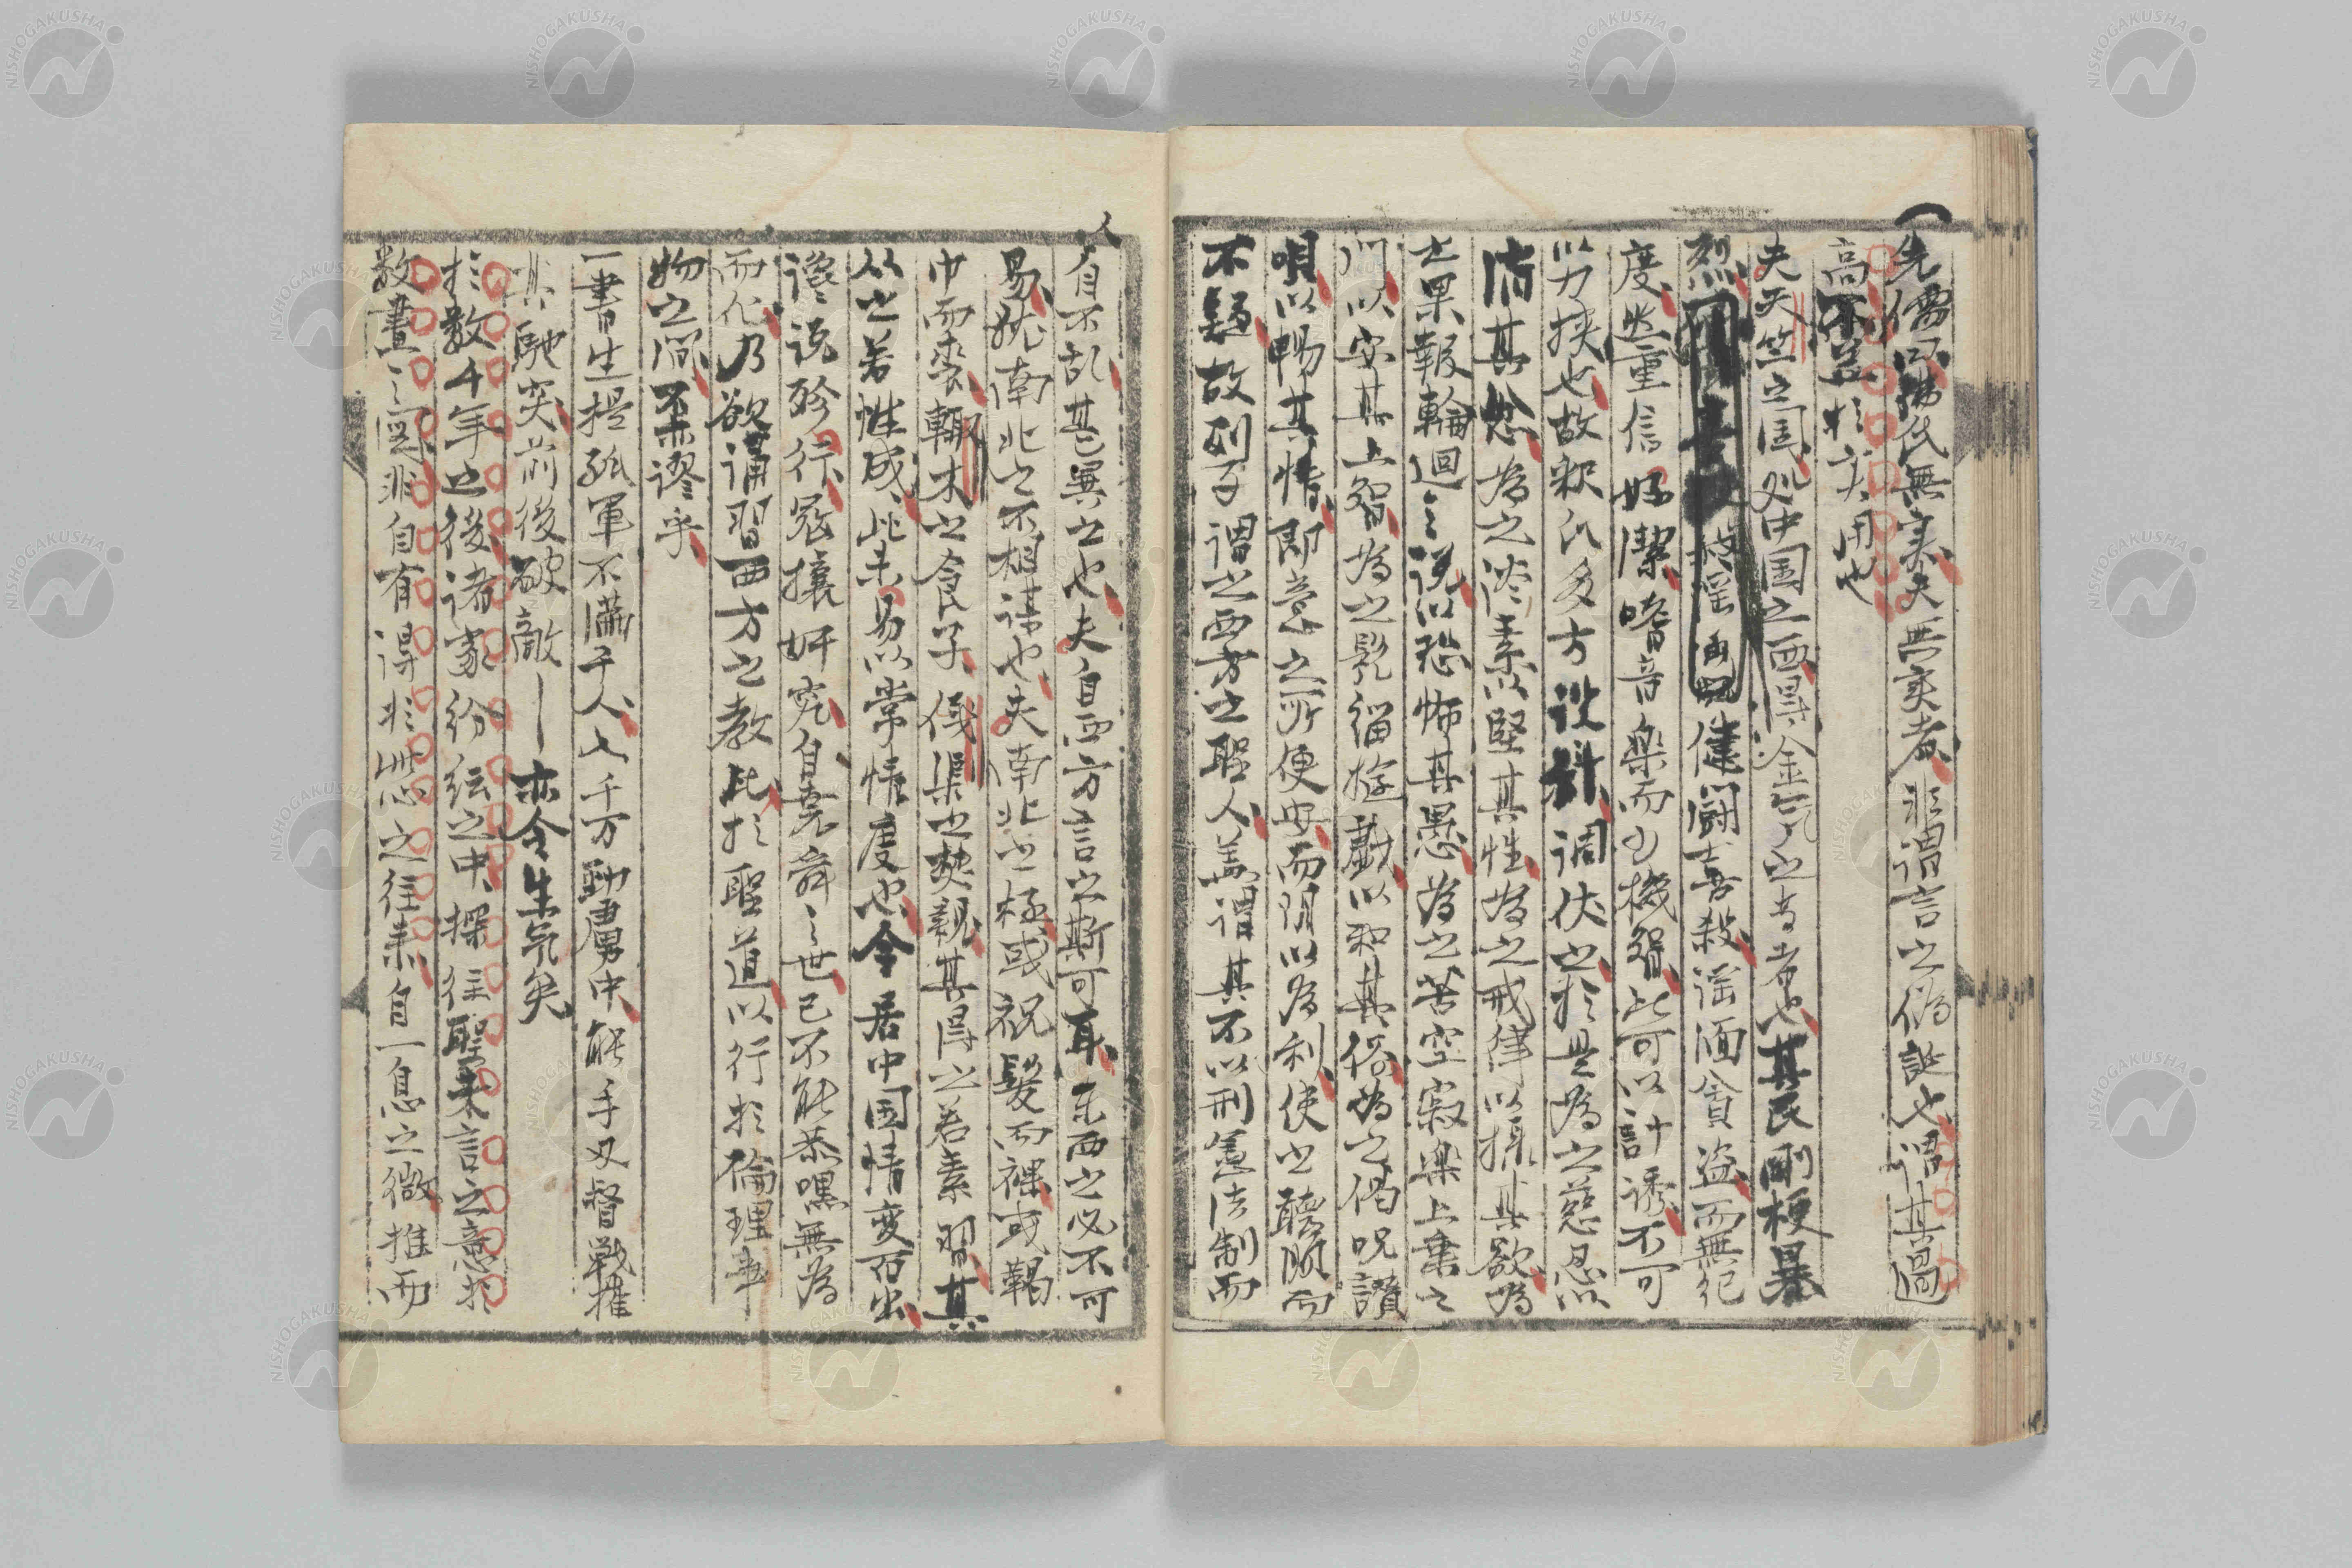 先儒以佛氏無実夫無実者非謂言之偽誕也謂其過
高不益於実用也
夫天竺之国処中国之西得金気之者也其民剛梗暴
烈健闘喜殺淫湎貪盗而無紀
度然重信好潔嗜音楽而機智此可以計誘不可
以力挟也故釈氏多方設科調伏之於是為之慈忍以
消其忿為之淡素以堅其性為之戒律以撿其欲為
之果報輪回之説以恐怖其愚為之苦空寂楽上乗之
門以安其上智為之髠緇遊戯以和其俗為之偈呪讃
唄以暢其情即意之所便安而陰以為利使之聴順而
不疑故列子謂之西方之聖人蓋謂其不以刑憲法制而
人自不乱甚異之也夫自西方言之斯可耳東西之必不可
易猶南北之不相謀也夫南北之極或祝髮而裸或鞨
巾而裘輒木之食子儀渠之爇親其得之若素習其
从之若性成此未易以常情度也今居中国情変百出
讒説殄行冦攘奸宄自堯舜之世已不能恭嘿無為
而化乃欲誦習西方之教比於聖道以行於倫理事
物之間不亦謬乎
一書生提孤軍不満千人入千万勁虜中能手刃督戦推
其馳突前後破敵亦令生気矣
於数千年之後諸家紛紜之中探往聖未言之意於
数畫之間非自有得於此心之往来自一息之微推而